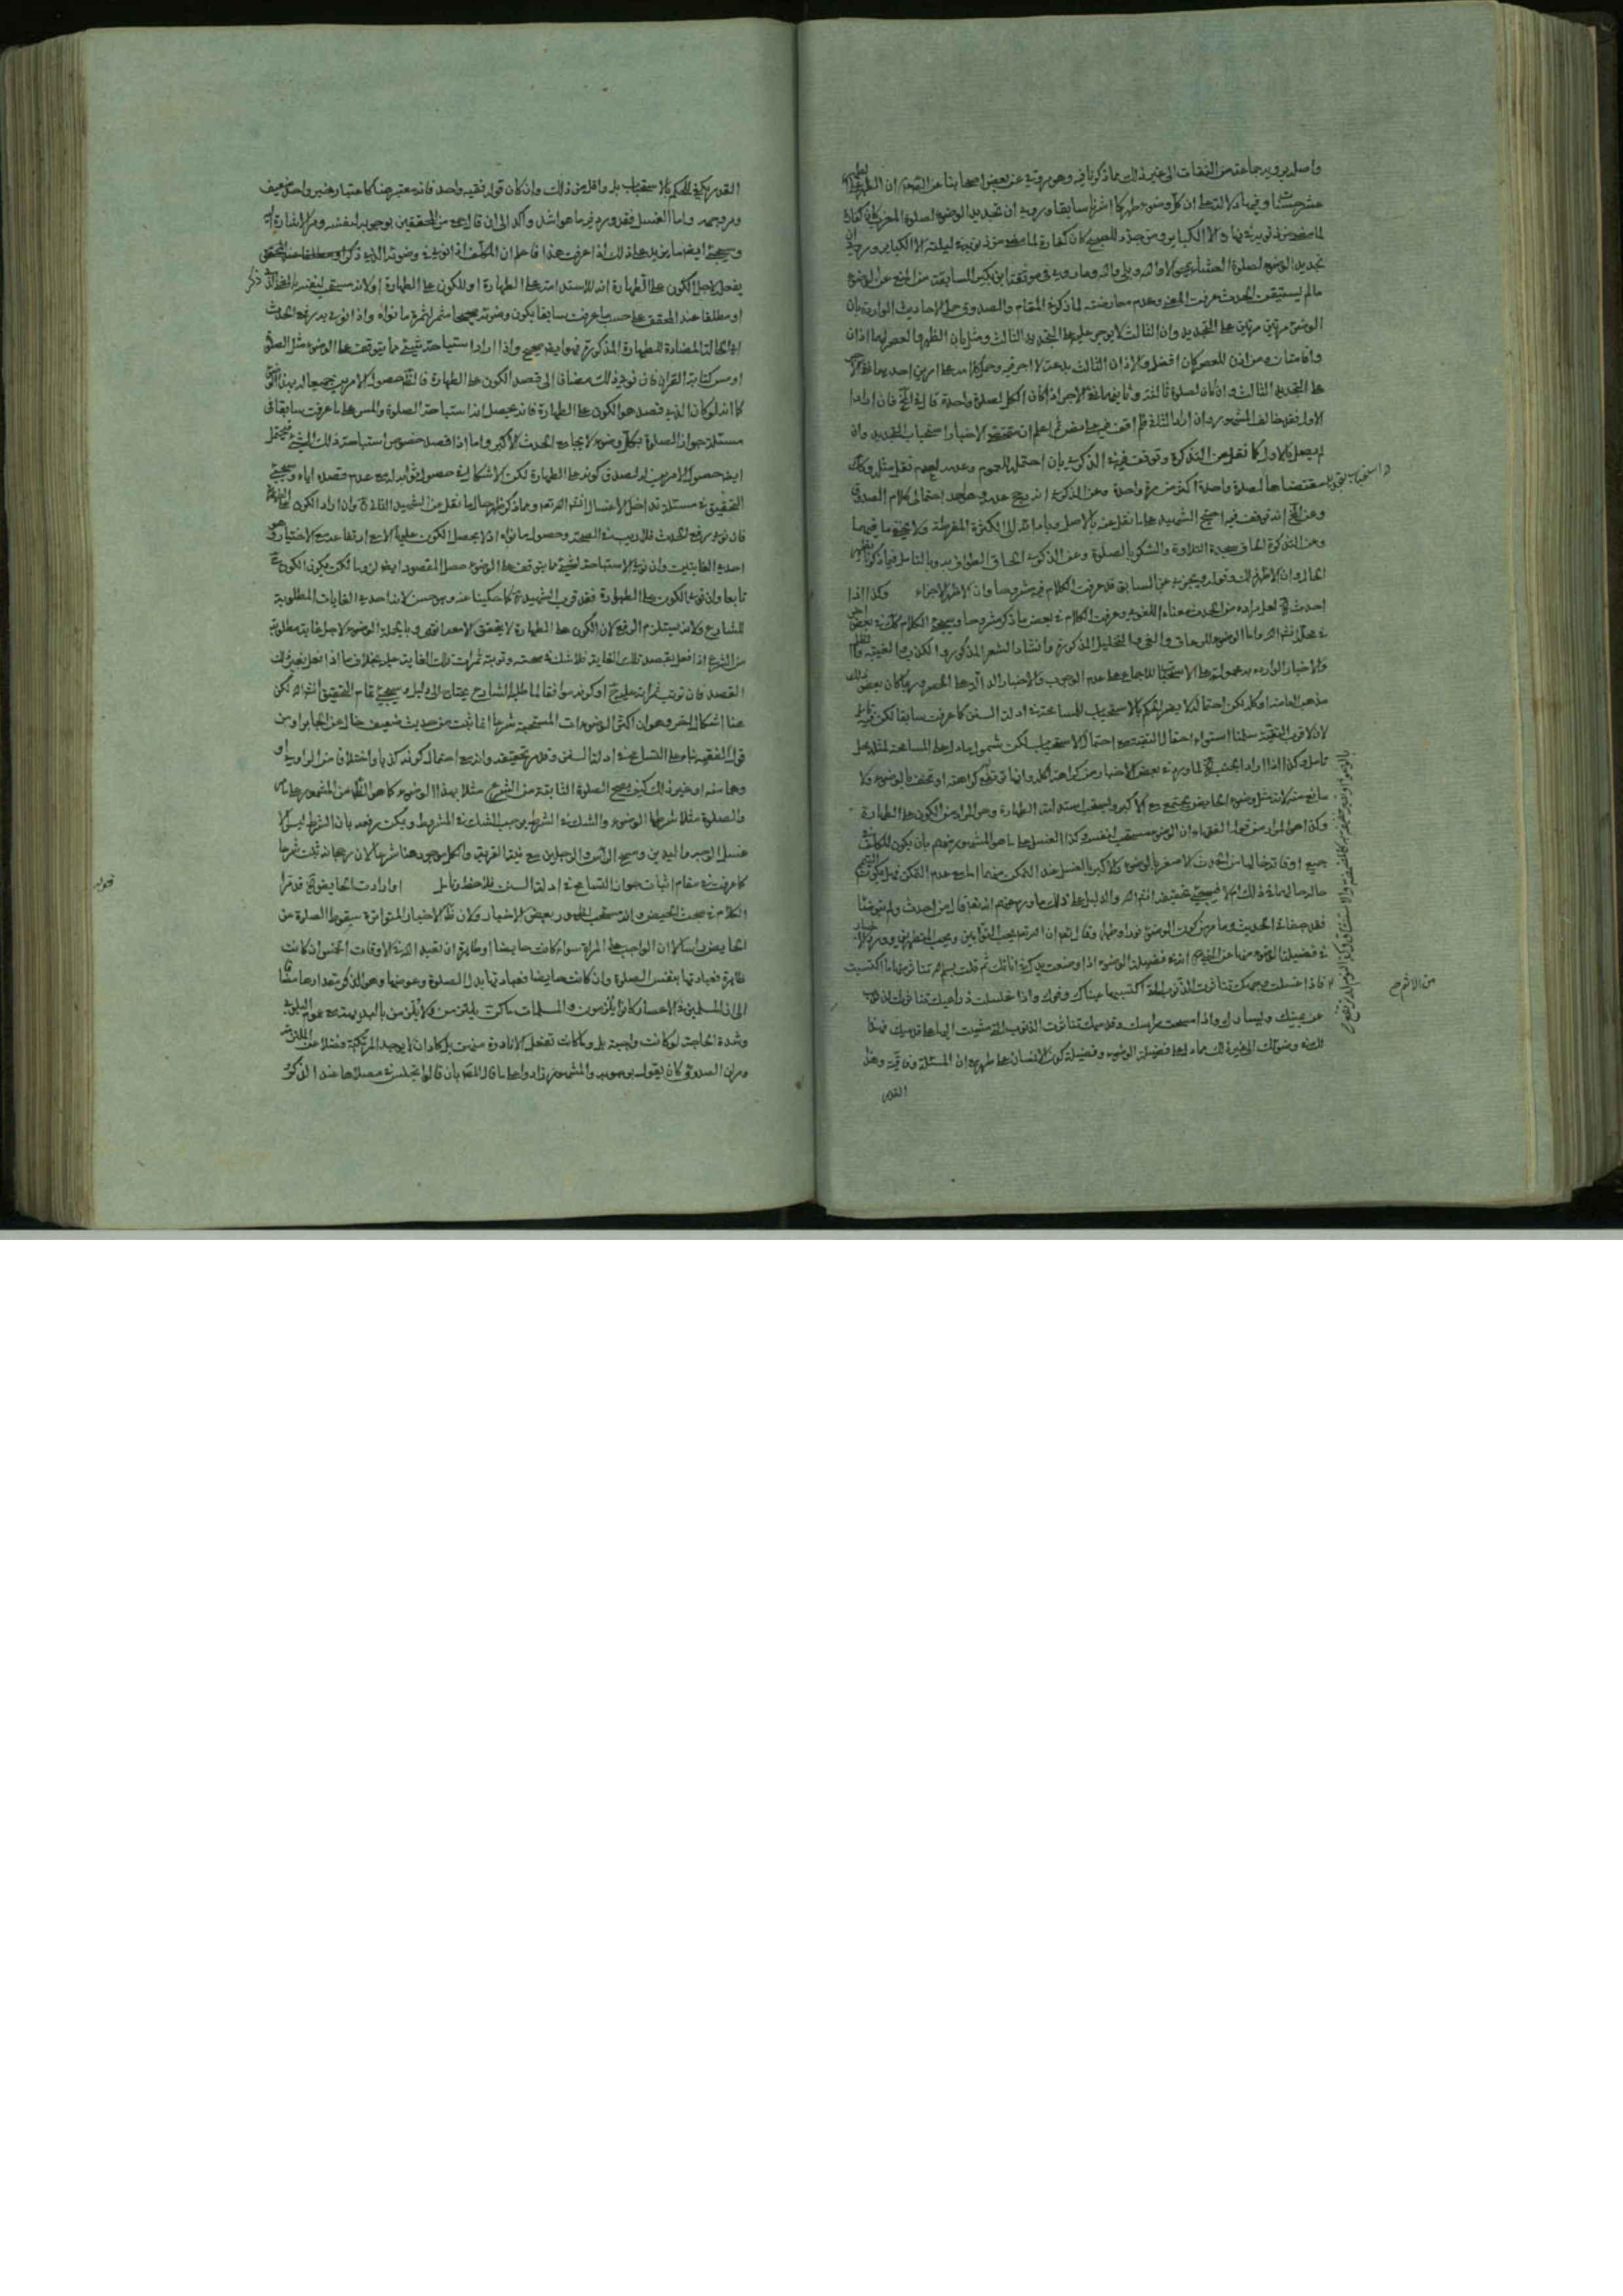 واصله يرويه جماعة من الثقات الى غير ذلك مما ذكرنا فيه وهو مروية عن بعض اصحابنا عن ان الطهر على
عشر حسنات وفيها دلالة على ان كل وضوء طهر كما اشرنا سابقا وروى ان تجديد الوضوء لصلوة المغرب كان كفارة
لما مضى من ذنوبه في نهاره الا الكبائر ومن جدد للصبح كان كفارة لما مضى من ذنوبه في ليلته الا الكبائر وروى ان
تجديد الوضوء لصلوة العشاء يمحو لا والله وبلى والله وما روى في موثقة ابن بكير السابقة من المنع عن الوضوء
مالم يستيقن الحدث عرفت المعنى وعدم معارضته لما ذكر في المقام والصدوق حمل الاحاديث الواردة بان
الوضوء مرتين مرتين على التجديد وان الثالث لا يوجر عليه على التجديد الثالث ومثل بان الظهر والعصر لهما اذان
واقامتان ومن اذن للعصر كان افضل والاذان الثالث بدعة لا اجر فيه وحمل كلامه على امرين احدهما
على التجديد الثالث وان كان لصلوة ثالثة وثانيهما نفي الاجر اذا كان الكل لصلوة واحدة فان اراد
الاول فقد خالف المشهور وان اراد الثاني فلم اقف فيه على نص ثم اعلم ان مقتضى الاخبار استحباب التجديد وان
لم يصل بالاول كما نقل عن التذكرة وتوقف فيه في الذكرى بان احتمل للعموم وعدمه لعدم نقل مثله وكذلك
مقتضاها لصلوة واحدة اكثر من مرة واحدة وعن الذكرى انه رجح عدمه
واستحباب التجديد
وعن انه توقف فيه احتج الشهيد على ما نقل عنه بالاصل وبادائه الى الكثرة المفرطة ولا يخفى ما فيهما
وعن التذكرة الحاق سجدة التلاوة والشكر بالصلوة وعن الذكرى الحاق الطواف به وبالتامل فيما ذكرنا يظهر
الحال وان الاظهر ذلك وقوله ويجزيه عن السابق قد عرفت الكلام فيه مشروحا وان الاظهر الاجزاء وكذا اذا
احدث لعل مراده من الحدث معناه اللغوي وعرفت الكلام في بعض ما ذكر مشروحا ويجئ الكلام في بعض اخر
في محله انشاء الله واما الوضوء للرعاف والقئ والتخليل المذكورة وانشاد الشعر المذكور والكذب والغيبة والظلم
والاخبار الواردة به محمولة على الاستحباب للاجماع على عدم الوجوب والاخبار الدالة على الحصر وربما كان بعض ذلك
مذهب العامة او كله لكن احتماله لا يضر الحكم بالاستحباب للمسامحة في ادلة السنن كما عرفت سابقا لكن فيه تامل
لان الاقرب التقية سلمنا استواء احتمال التقية مع احتمال الاستحباب لكن شمول ما دل على المسامحة لمثله محل
تامل وكذا اذا اراد الجنب لما ورد في بعض الاخبار من كراهة اكله وانها ترتفع كراهته او تخفف بالوضوء ولا
مانع منه لانه مثل وضوء الحايض يجتمع مع الاكبر ويستحب استدامة الطهارة وهو المراد من الكون على الطهارة
وكذا هو المراد من قول الفقهاء ان الوضوء مستحب لنفسه وكذا الغسل على ما هو المشهور منهم بان يكون المكلف في
جميع اوقاته خاليا من الحدث الاصغر بالوضوء والاكبر بالغسل عند التمكن منهما اما مع عدم التمكن فهل يكون التيمم
حاله حالهما في ذلك ام لا فسيجئ تحقيقه انشاء الله والدليل على ذلك ما ورد عنهم انه تعالى قال من احدث ولم يتوضأ
فقد جفاني الحديث وما مر من كون الوضوء نورا وطهرا وقال تعالى ان الله يحب التوابين ويحب المتطهرين وورد اخبار
في فضيلة الوضوء منها عن النبي في فضيلة الوضوء اذا وضعت يدك في انائك ثم قلت بسم الله تناثرت منها ما اكتسبت
من الاثم صح
فاذا غسلت وجهك تناثرت الذنوب التي اكتسبها عيناك وفوك واذا غسلت ذراعيك تناثرت الذنوب
عن يمينك ويسارك واذا مسحت راسك وقدميك تناثرت الذنوب التي مشيت اليها على قدميك فهذا
لك في وضوئك الى غير ذلك مما دل على فضيلة الوضوء وفضيلة كون الانسان على طهر مع ان المسئلة وفاقية وهذا
القدر
القدر يكفي للحكم بالاستحباب بل واقل من ذلك وان كان قول فقيه واحد فانه معتبر هنا كاعتبار خبر واحد ضعيف
ومر وجهه واما الغسل فقد ورد فيه ما هو اشد واكد الى ان قال جمع من المحققين بوجوبه لنفسه ومر الاشارة اليه
وسيجئ ايضا ما يزيد على ذلك اذا عرفت هذا فاعلم ان المكلف اذا نوى في وضوئه الذي ذكر
يفعل لاجل الكون على الطهارة انه للاستدامة على الطهارة او للكون على الطهارة او لانه مستحب لنفسه
او مطلقا عند المحقق على حسب ما عرفت سابقا يكون وضوئه صحيحا مثمرا لثمرة ما نواه واذا نوى به رفع الحدث
اي الحالة المضادة للطهارة المذكورة فهو ايضا صحيح واذا اراد استباحة شيئ مما يتوقف على الوضوء مثل الصلوة
او مس كتابة القران فان نوى ذلك مضافا الى قصد الكون على الطهارة فالظ حصول الامرين جميعا له بهذا الوضوء
كما انه لو كان الذي قصد هو الكون على الطهارة فانه يحصل له استباحة الصلوة والمس على ما عرفت سابقا في
مسئلة جواز الصلوة بكل وضوء لا يجامع الحدث الاكبر واما اذا قصد خصوص استباحة ذلك الشئ فيحتمل
ايضا حصول الامرين له لصدق كونه على الطهارة لكن الاشكال في حصول ثوابه له مع عدم قصده اياه وسيجئ
التحقيق في مسئلة تداخل الاغسال انشاء الله تعالى ومما ذكر ظهر حال ما نقل عن الشهيد وان اراد الكون على الطهارة
فان نوى رفع الحدث فلا ريب في الصحة وحصول ما نواه اذ لا يحصل الكون عليها الا مع ارتفاعه مع الاختيار وهو
احدى الغايتين وان نوى الاستباحة لشئ مما يتوقف على الوضوء حصل المقصود ايضا لزوما لكن يكون الكون ح
تابعا وان نوى الكون على الطهارة فقد قرب الشهيد كما حكيناه عنه وهو حسن لانه احدى الغايات المطلوبة
للشارع ولانه يستلزم الرفع لان الكون على الطهارة لا يتحقق الا معه انتهى وبالجملة الوضوء لاجل غاية مطلوبة
من الشرع اذا فعل بقصد تلك الغاية فلا شك في صحته وترتب ثمرات تلك الغاية عليه بخلاف ما اذا فعل بغير ذلك
القصد فان ترتب ثمراته عليه ح او كونه موافقا لما طلبه الشارع يحتاج الى دليل وسيجئ تمام التحقيق انشاء الله لكن
هنا اشكال اخر وهو ان اكثر الوضوءات المستحبة شرعا انما ثبت من حديث ضعيف خال عن الجابر او من
قول الفقيه بناء على التسامح في ادلة السنن وقد مر تحقيقه وانه مع احتمال كونه كذبا واختلاق من الراوي او
وهما منه او غير ذلك كيف يصح الصلوة الثابتة من الشرع مثلا بهذا الوضوء كما هو الظاهر من المشهور على ما مر
والصلوة مثلا شرطها الوضوء والشك في الشرط يوجب الشك في المشروط ويمكن رفعه بان الشرط ليس الا
غسل الوجه واليدين ومسح الراس والرجلين مع نية القربة والكل موجود هنا شرعا لان رجحانه ثبت شرعا
كما عرفت في مقام اثبات جواز التسامح في ادلة السنن فلاحظ وتامل او ارادت الحايض قد مر
الكلام في مبحث الحيض وانه مستحب لظهور بعض الاخبار ولان ظ الاخبار المتواترة سقوط الصلوة عن
الحايض راسا لان الواجب على المراة سواء كانت حايضا او طاهرة ان تعبد الله في الاوقات الخمس ان كانت
طاهرة فعبادتها بنفس الصلوة وان كانت حايضا فعبادتها بدل الصلوة وعوضها وهو الذكر مقدارها
الى ان المسلمين في الاعصار كانوا يلزمون والمسلمات ما كن يلتزمن ولا يلزمن بالبدلية مع عموم البلوى
وشدة الحاجة لو كانت واجبة بل وما كانت تفعل الا نادرة منهن بل كاد ان لا يوجد المرتكبة فضلا عن الملتزمة
ومر ان الصدوق كان يقول بوجوبه والمشهور زادوا على ما قال المصنف بان قالوا تجلس في مصلاها عند الذكر
قوله